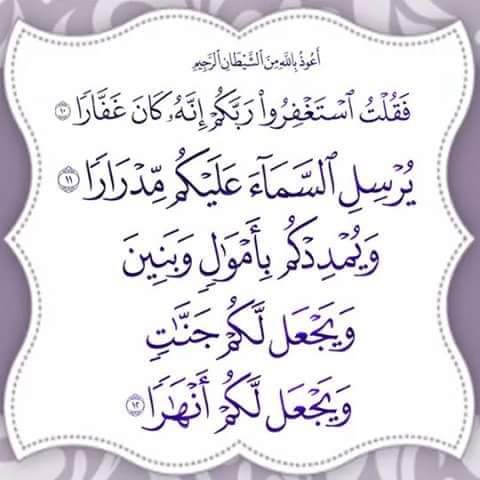 أَعُوذُ بِاللَّهِ مِنَ الشَّيْطَانِ الرَّجِيمِ
فَقُلْتُ ٱسْتَغْفِرُوا۟ رَبَّكُمْ إِنَّهُۥ كَانَ غَفَّارًۭا ١٠
يُرْسِلِ ٱلسَّمَآءَ عَلَيْكُم مِّدْرَارًۭا ١١
وَيُمْدِدْكُم بِأَمْوَٰلٍۢ وَبَنِينَ
وَيَجْعَل لَّكُمْ جَنَّٰتٍۢ
وَيَجْعَل لَّكُمْ أَنْهَٰرًۭا ١٢